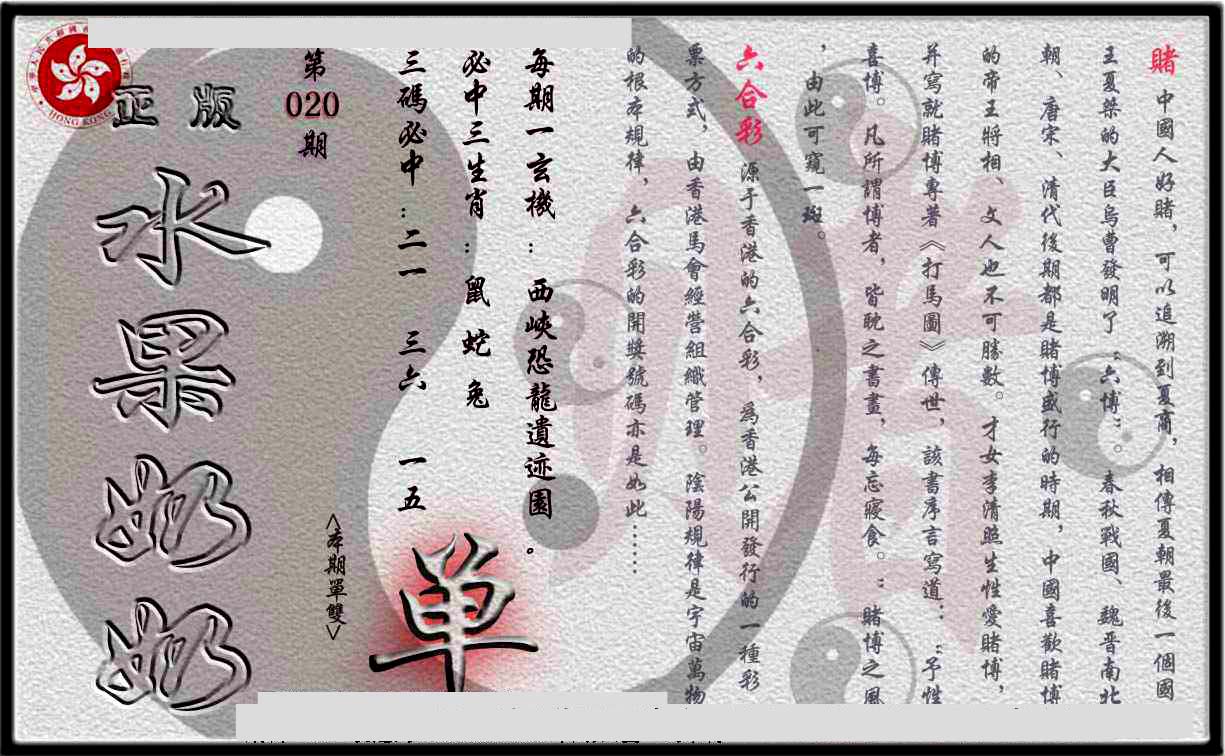 賭 中國人好賭，可以追溯到夏商，相傳夏朝最後一個國
王夏桀的大臣烏曹發明了“六博”。春秋戰國、魏晋南北
朝、唐宋、清代後期都是賭博盛行的時期，中國喜歡賭博
的帝王將相、文人也不可勝數。才女李清照生性愛賭博，
并寫就賭博專著《打馬圖》傳世，該書序言寫道：“予性
喜博。凡所謂博者，皆耽之晝畫，每忘寢食。”賭博之風
，由此可窺一斑。
六合彩 源于香港的六合彩，爲香港公開發行的一種彩
票方式，由香港馬會經營組織管理。陰陽規律是宇宙萬物
的根本規律，六合彩的開獎號碼亦是如此……
每期一玄機：西峽恐龍遺迹園。
必中三生肖：鼠 蛇 兔
三碼必中：二一 三六 一五
<本期單雙>
单
第
020
期
正版
水果奶奶
HONG KONG